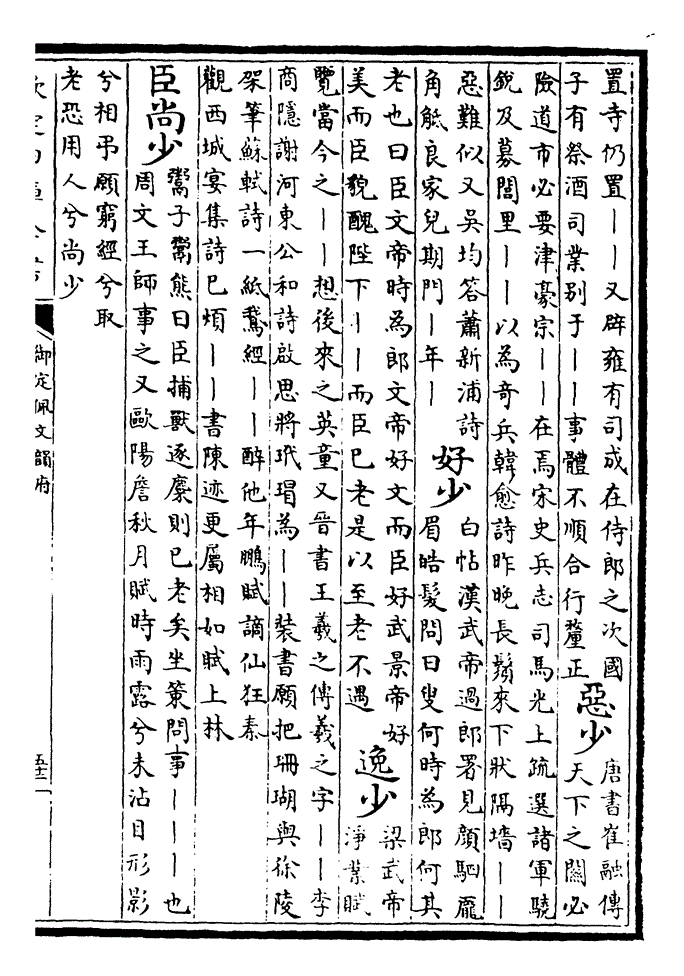 置寺仍置——又辟雍有司成在侍郎之次國
子有祭酒司業别于——事體不順合行釐正
惡少
唐書崔融傳
天下之關必
險道市必要津豪宗——在焉宋史兵志司馬光上疏選諸軍驍
鋭及募閭里——以為奇兵韓愈詩昨晚長鬚來下狀隔墻——
惡難似又吳均答蕭新浦詩
角觝良家兒期門—年—
好少
白帖漢武帝過郎署見顔駟龎
眉皓髮問曰叟何時為郎何其
老也曰臣文帝時為郎文帝好文而臣好武景帝好
美而臣貌醜陛下——而臣已老是以至老不遇
逸少
梁武帝
淨業賦
覽當今之——想後來之英童又晉書王羲之傳羲之字——李
商隱謝河東公和詩啟思將玳瑁為——装書願把珊瑚與徐陵
架筆蘇軾詩一紙鵞經——醉他年鵬賦謫仙狂秦
觀西城宴集詩已煩——書陳迹更屬相如賦上林
臣尚少
鬻子鬻熊曰臣捕獸逐麋則已老矣坐策問事———也
周文王師事之又歐陽詹秋月賦時雨露兮未沾目形影
兮相弔願窮經兮取
老恐用人兮尚少
御定佩文韻府